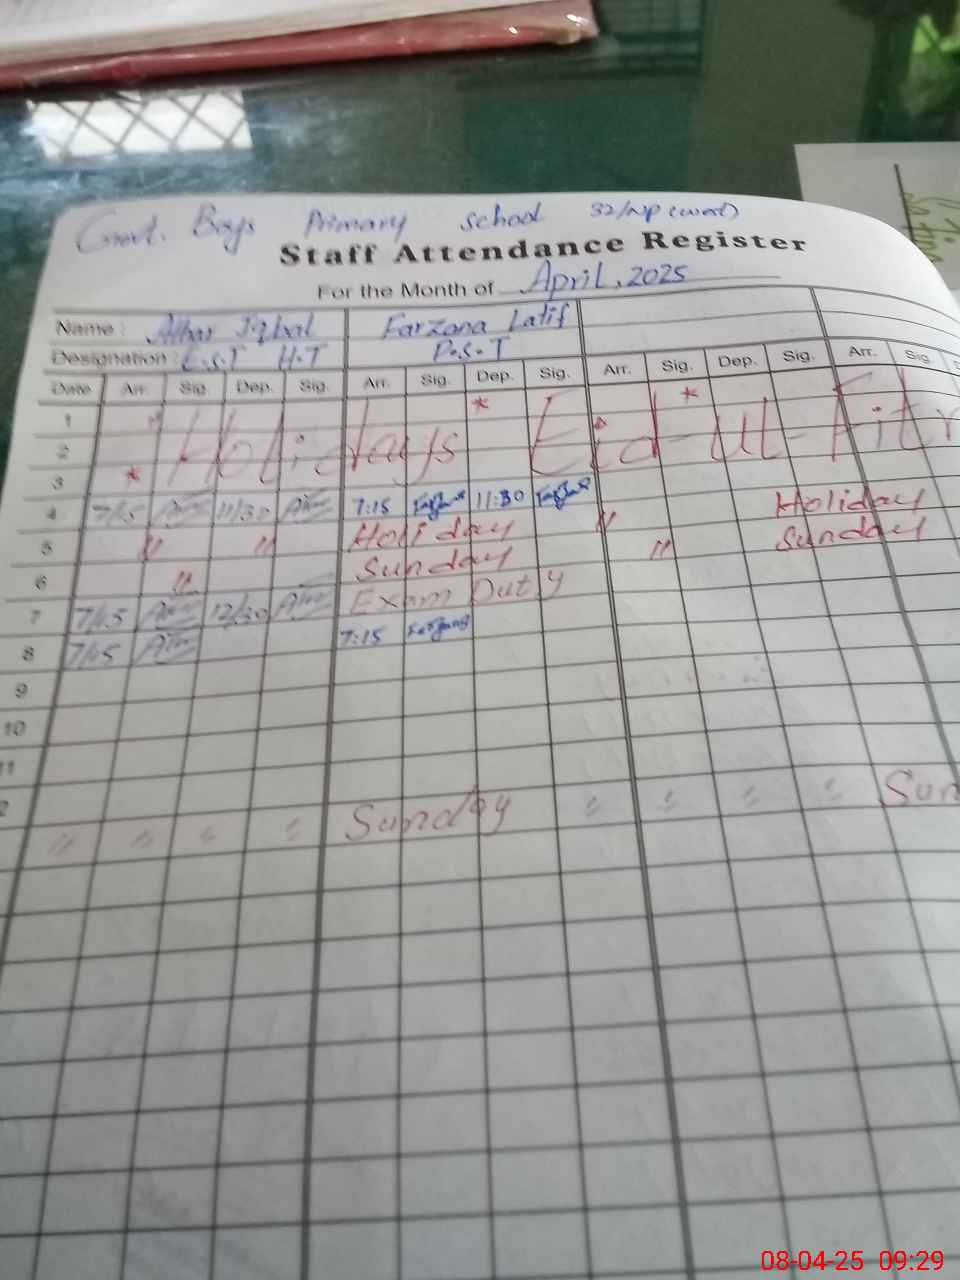 Govt. Boys Primary school 32/NP (west)
Staff Attendance Register
For the Month of April, 2025
Name: Athar Iqbal Farzana Latif
Designation: E.S.T H.T P.S.T
Date Arr. Sig. Dep. Sig. Arr. Sig. Dep. Sig. Arr. Sig. Dep. Sig. Arr. Sig.
1
2 Holidays Eid-ul-Fitr
3
4 7/15 11/30 7:15 11:30 Holiday
5 " " Holiday " " Sunday
6 " Sunday
7 7/15 12/30 Exam Duty
8 7/15 7:15
9
10
11
2 " " " " Sunday " " " " Sun
08-04-25 09:29